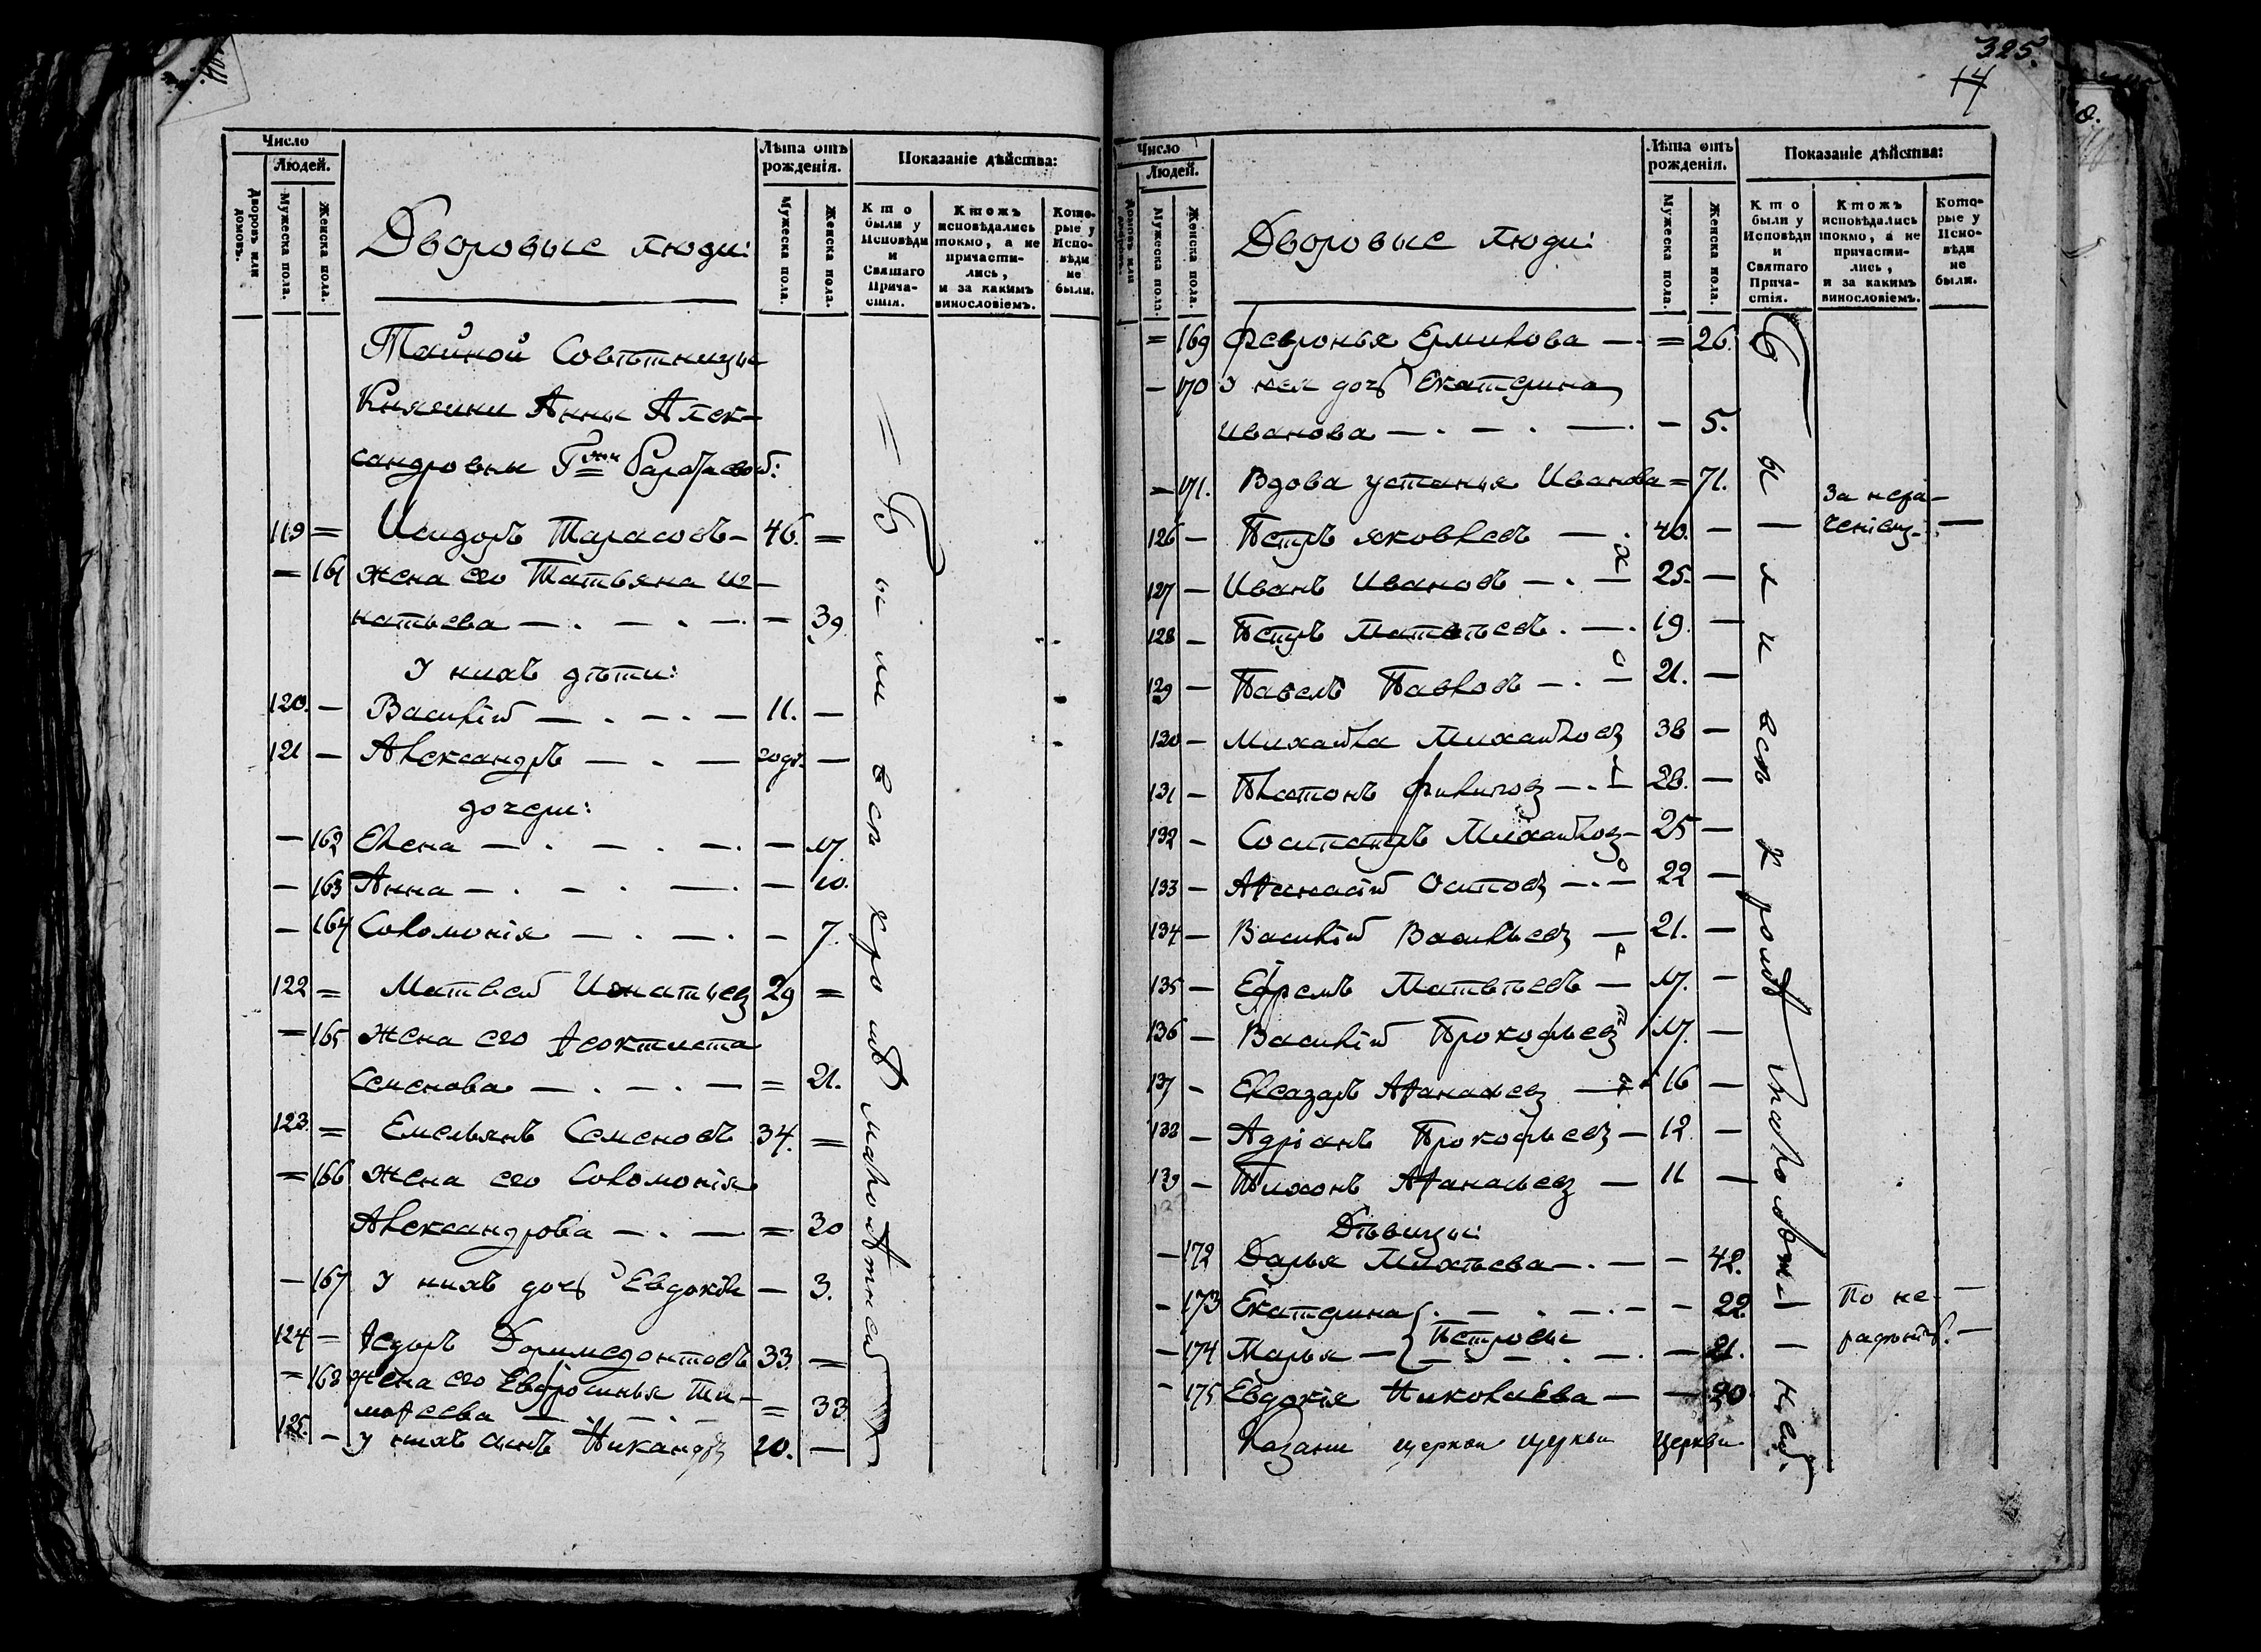 Число
Людей.
Дворовъ или домовъ.
Мужеска пола.
Женска пола.
Дворовые люди:
Лѣта отъ рожденія.
Мужеска пола.
Женска пола.
Показаніе дѣйства:
Кто были у Исповѣди и Святаго Прича-стія.
Ктожъ исповѣдались токмо, а не причасти-лись, и за какимъ винословіемъ.
Кото-рые у Испо-вѣди не были.
Тайной Совѣтницы
Княгини Анны Алек-
сандровны Г
119 = Исидоръ Тарасовъ - 46. =
= 161 жена его Татьяна Иг-
натьева - - 39
У нихъ дѣти:
120. - Василій - 11. -
121 - Александръ - годъ. -
дочери:
- 162 Елена - - 17.
- 163 Анна - - 10.
- 164 Соломонія - - 7.
122 = Матвей Игнатьевъ 29 =
= 165 жена его Ѳеоктиста
Семенова - = 21.
123. = Емельянъ Семеновъ 34. =
= 166 жена его Соломонія
Александрова - = 30
- 167 У нихъ дочь Евдокія - 3.
124 - Ѳедоръ Доримедонтовъ 33. =
= 168 жена его Евфросинья Ти-
моѳеева - = 33.
125. - у нихъ сынъ Никандръ 10. -
Были вси кромѣ малолѣтнихъ
325.
14
Число
Людей.
Домовъ или дворовъ.
Мужеска пола.
Женска пола.
Дворовые люди:
Лѣта отъ рожденія.
Мужеска пола.
Женска пола.
Показаніе дѣйства:
Кто были у Исповѣди и Святаго Прича-стія.
Ктожъ исповѣдались токмо, а не причасти-лись, и за какимъ винословіемъ.
Кото-рые у Испо-вѣди не были.
= 169 Февронья Ермилова - = 26.
- 170 У нея дочь Екатерина
Иванова - - 5.
- 171. Вдова Устинья Иванова = 71.
126 - Петръ Яковлевъ - 40. - -
127 - Иванъ Ивановъ - 25. -
128 - Петръ Матвѣевъ. - 19. -
129 - Павелъ Павловъ - 21. -
130 - Михайла Михайловъ 38 -
131 - Платонъ Филиповъ - 28. -
132 - Сосипатръ Михайловъ - 25 -
133 - Аѳанасій Осиповъ - 22 -
134 - Василій Васильевъ - 21. -
135 - Ефремъ Матвѣевъ - 17. -
136 - Василій Прокофьевъ 17. -
137 - Елеазаръ Аѳанасьевъ - 16 -
138 - Адріанъ Прокофьевъ - 12. -
139 - Тихонъ Аѳанасьевъ - 11 -
Дѣвицы:
- 172 Дарья - - 42.
- 173 Екатерина - - 22.
Петровы
- 174 Марья - - 21.
- 175 Евдокія Николаева - - 20
церкви церкви церкви
Х о л о с т
Были вси кромѣ малолѣтнихъ
За нера-
ченіемъ.
По не-